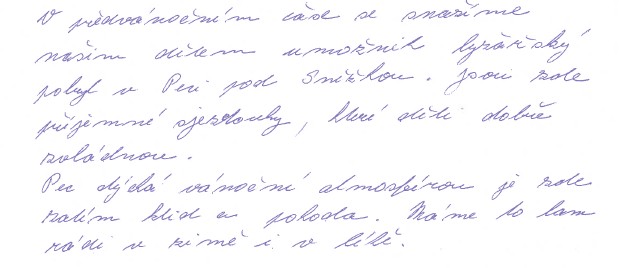 V předvánočním čase se snažíme
našim dětem umožnit lyžařský
pobyt v Peci pod Sněžkou. Jsou zde
příjemné sjezdovky, které děti dobře
zvládnou.
Pec dýchá vánoční atmosférou je zde
zatím klid a pohoda. Máme to tam
rádi v zimě i v létě.